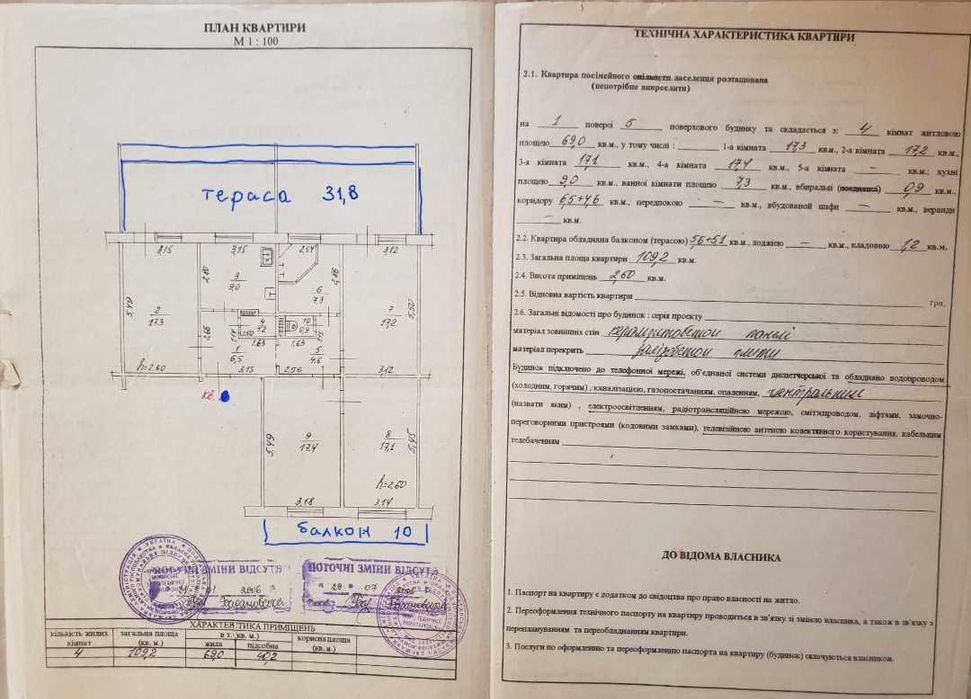 ПЛАН КВАРТИРИ
М 1 : 100
тераса 31,8
3,15 3,15 2,54 3,12
5,49
2
17.3
2,80
3
9.0
6
7.3
2,86
7
17,2
5,50
2,66
4
7.2
10
0,9
1,50 1,63 1,63
1
6,5
5
4,6
h=2.60
3,15 2,56 3,12
кв.
5,49
9
17,4
8
17,1
5,45
h=2,60
3,18 3,14
балкон 10
ЗМІНИ ВІДСУТ
ПОТОЧНІ ЗМІНИ ВІДСУТ
01 2006
28 07
ХАРАКТЕРИСТИКА ПРИМІЩЕНЬ
кількість жилих кімнат
загальна площа (кв. м)
в т. ч. (кв. м)
жила
підсобна
корисна площа (кв. м.)
4 109,2 69,0 40,2
ТЕХНІЧНА ХАРАКТЕРИСТИКА КВАРТИРИ
2.1. Квартира посімейного спільного заселення розташована
(непотрібне викреслити)
на 1 поверсі 5 поверхового будинку та складається з: 4 кімнат житловою
площею 69,0 кв.м., у тому числі : 1-а кімната 17,3 кв.м., 2-а кімната 17,2 кв.м.,
3-я кімната 17.1 кв.м., 4-а кімната 17,4 кв.м., 5-а кімната – кв.м.; кухні
площею 9,0 кв.м., ванної кімнати площею 7,3 кв.м., вбиральні (поєднаної) 0,9 кв.м.,
коридору 6,5+4,6 кв.м., передпокою – кв.м., вбудованої шафи – кв.м., веранди
– кв.м.
2.2. Квартира обладнана балконом (терасою) 5,6+5,1 кв.м., лоджією – кв.м., кладовою 1,2 кв.м.
2.3. Загальна площа квартири 109,2 кв.м.
2.4. Висота приміщень 2,60 кв.м.
2.5. Відновна вартість квартири грн.
2.6. Загальні відомості про будинок : серія проекту
матеріал зовнішніх стін керамзитобетон панелі
матеріал перекрить залізобетон плити
Будинок підключено до телефонної мережі, об'єднаної системи диспетчерської та обладнано водопроводом
(холодним, горячим) , каналізацією, газопостачанням, опаленням, центральним
(назвати яким) , електроосвітленням, радіотрансляційною мережою, сміттєпроводом, ліфтами, замочно-
переговорними пристроями (кодовими замками), телевізійною антеною колективного користування, кабельним
телебаченням
ДО ВІДОМА ВЛАСНИКА
1. Паспорт на квартиру є додатком до свідоцтва про право власності на житло.
2. Переоформлення технічного паспорту на квартиру проводиться в зв'язку зі зміною власника, а також в зв'язку з
переплануванням та переобладнанням квартири.
3. Послуги по оформленню та переоформленню паспорта на квартиру (будинок) сплачуються власником.